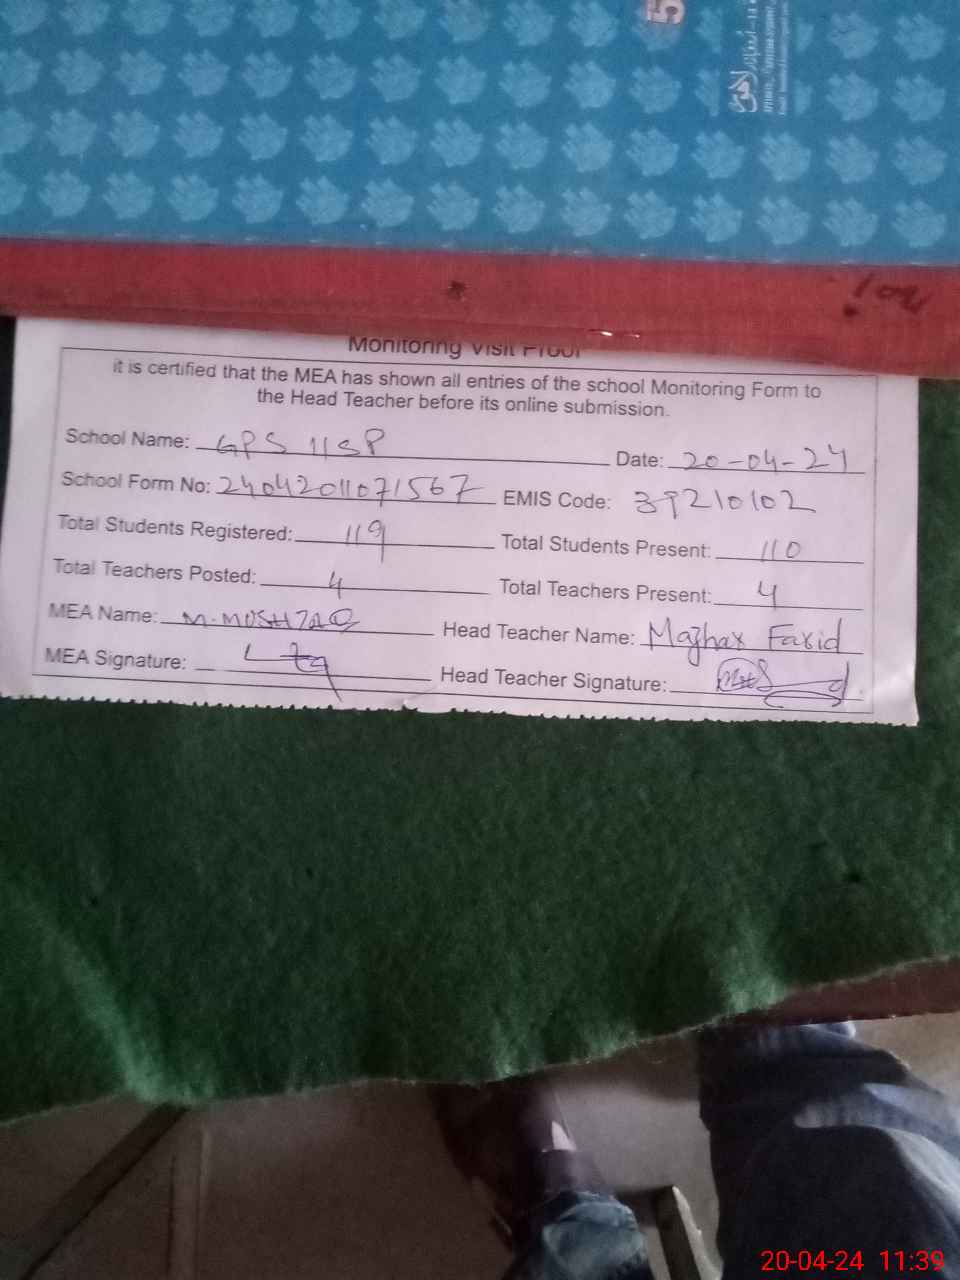 5
Monitoring Visit Proof
it is certified that the MEA has shown all entries of the school Monitoring Form to
the Head Teacher before its online submission.
School Name: GPS 11SP Date: 20-04-24
School Form No: 24042011071567 EMIS Code: 39210102
Total Students Registered: 119 Total Students Present: 110
Total Teachers Posted: 4 Total Teachers Present: 4
MEA Name: M. MUSHTAQ Head Teacher Name: Mazhar Farid
MEA Signature: Head Teacher Signature:
20-04-24 11:39